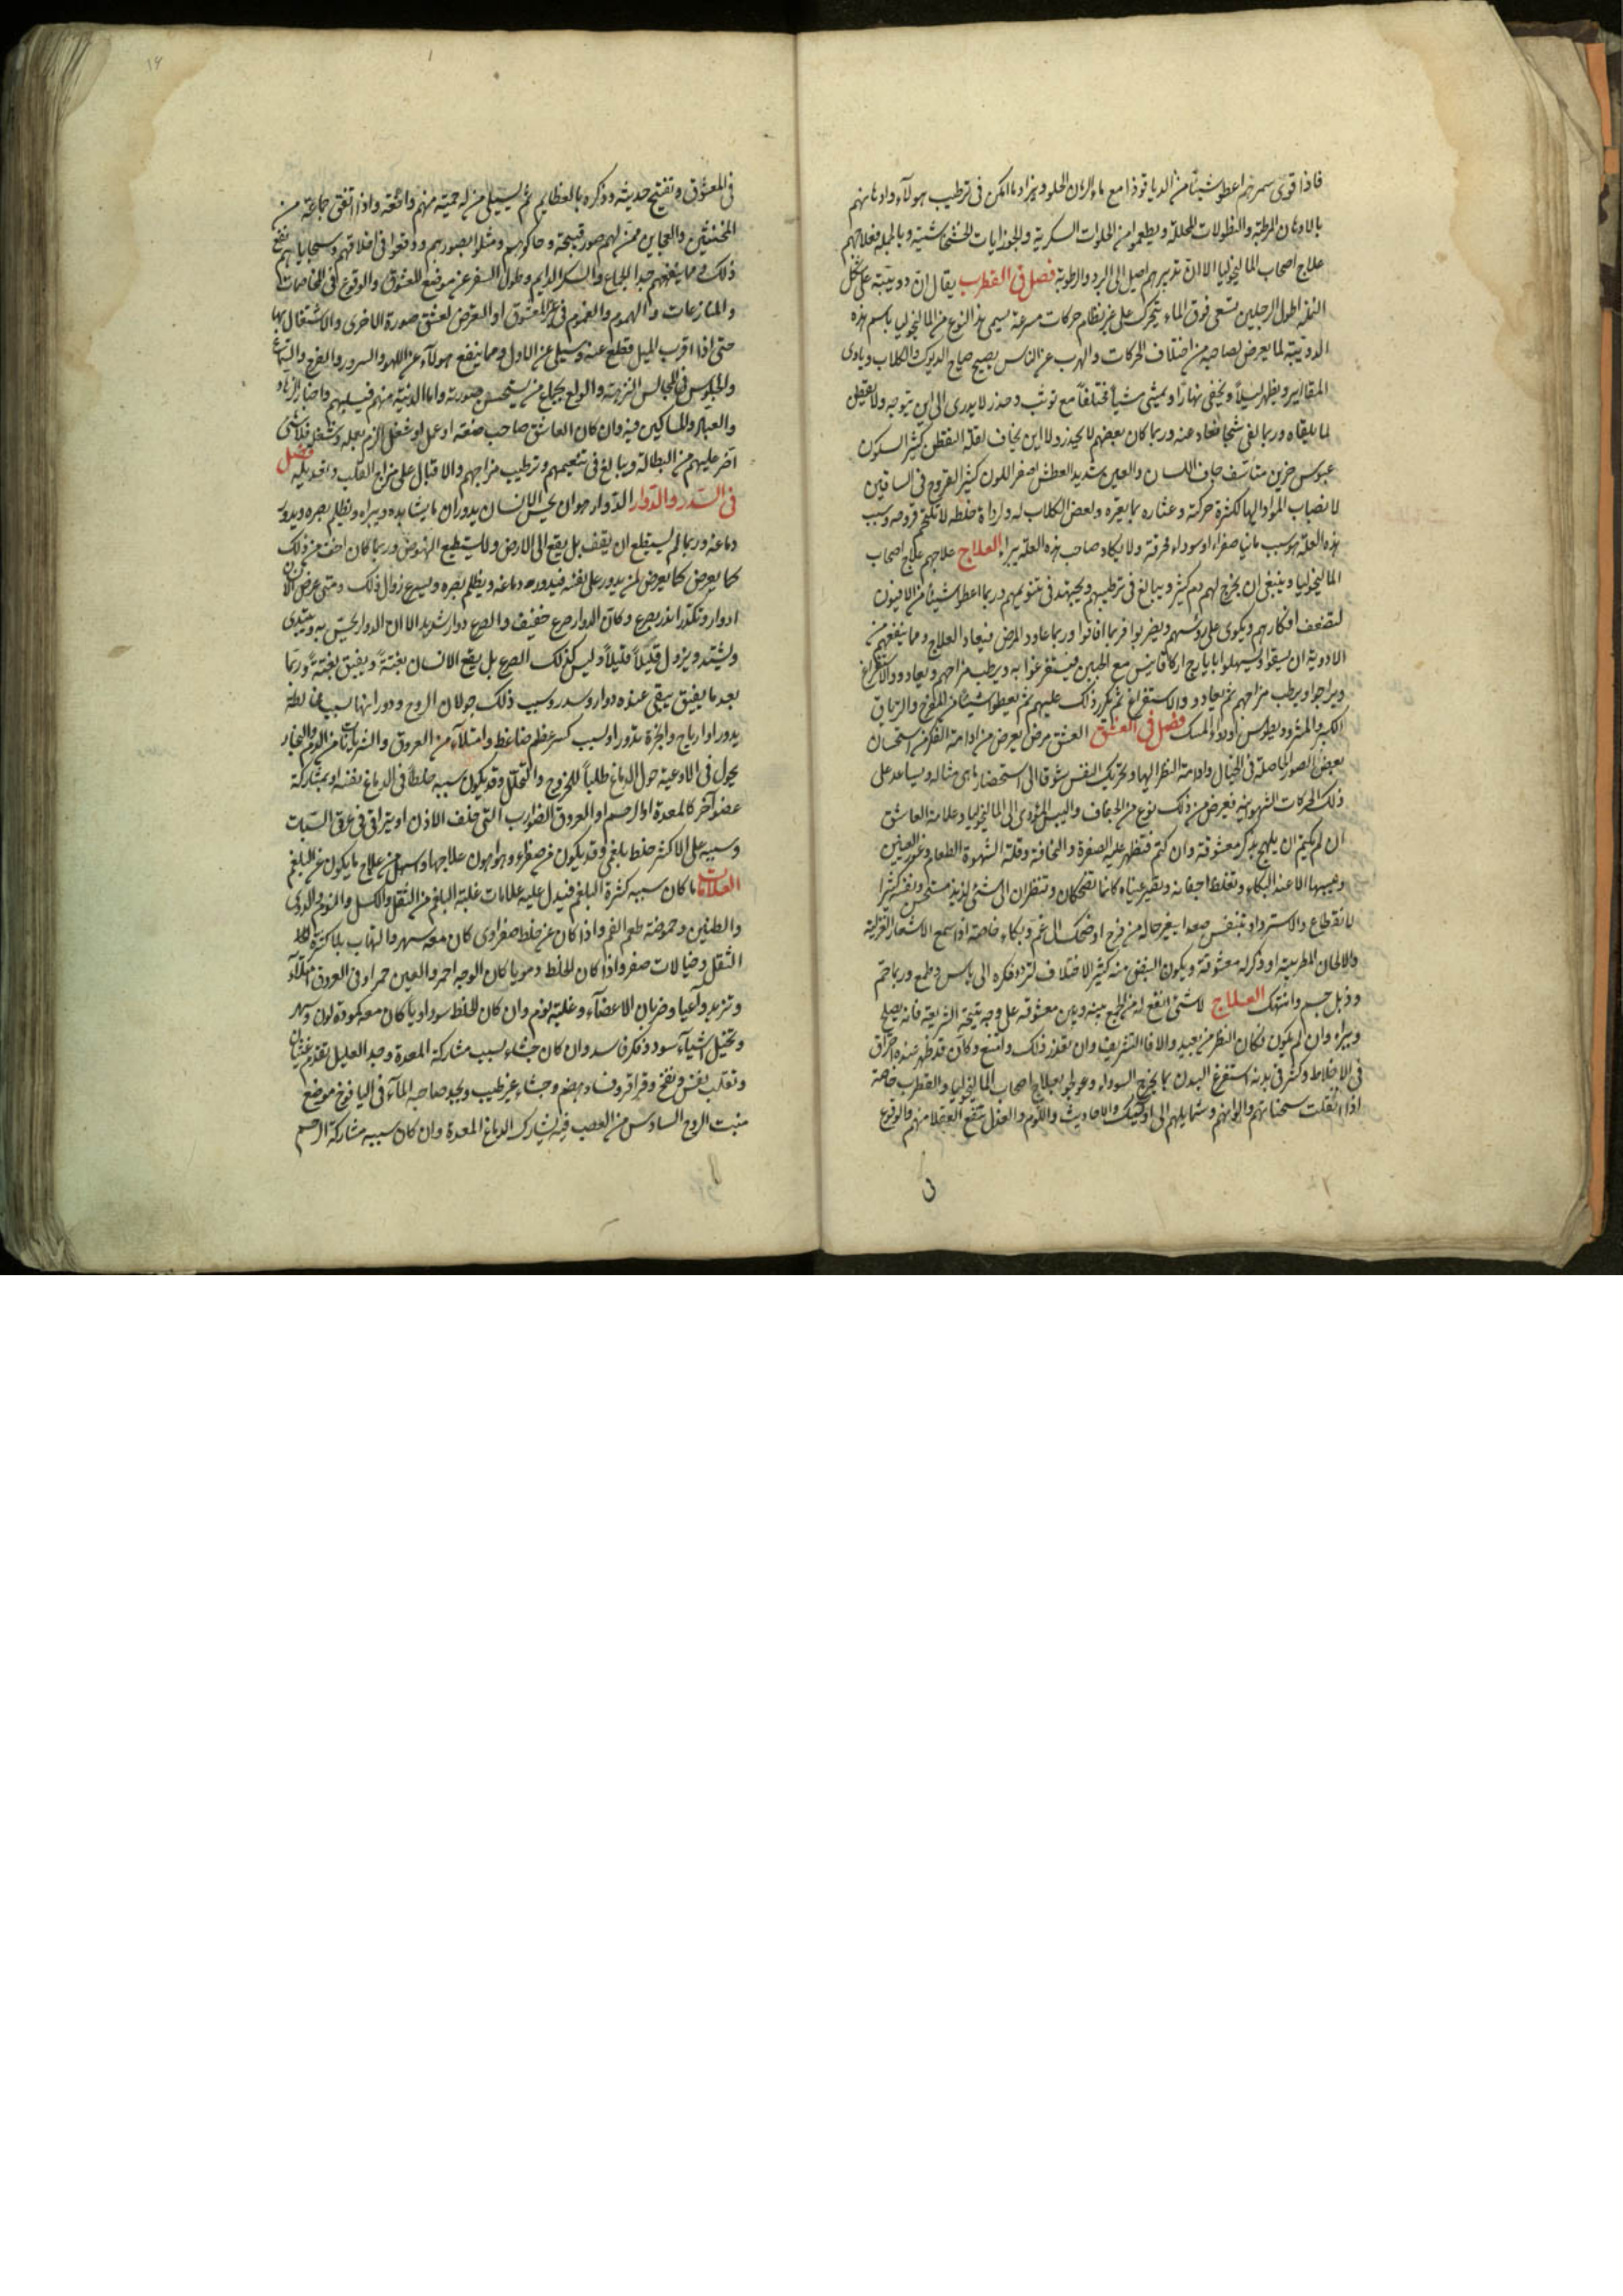 فاذا قوى سهرهم اعطوا شيئا من الدياقوذا مع ماء الرمان الحلو ويزاد ما امكن فى ترطيب هولآء وادهانهم
بالادهان المرطبة والنطولات المحللة ويطعموا من الحلوات السكرية والجوذابات الخشخاشية وبالجملة فعلاجهم
علاج اصحاب الماليخوليا الا ان تدبيرهم اميل الى البرد والرطوبة فصل فى القطرب يقال ان دويبة على شكل
النملة اطول الرجلين تسعى فوق الماء يتحرك على غير نظام حركات مسرعة يسمى هذا النوع من الماليخوليا باسم هذه
الدويبة لما يعرض لصاحبه من اختلاف الحركات والهرب عن الناس يصيح صياح الديوك والكلاب وياوى
المقابر ويظهر ليلاً ويخفى نهاراً ويمشى مشياً مختلفاً مع توثب وحذر لا يدرى الى اين يتوجه ولا يفطن
لما يلقاه وربما لقى شجا فعاد عنه وربما كان بعضهم لا يحذر ولا اين يخاف لقلة التفطن كثير السكون
عبوس حزين متاسف جاف اللسان والعين شديد العطش اصفر اللون كثير القروح فى الساقين
لانصباب المواد اليها لكثرة حركته وعثاره بما يعقره ولعض الكلاب له ولرداة خلطه لا تلتحم قروحه وسبب
هذه العلة هو سبب مانيا صفراء او سوداء محرقة ولا يكاد صاحب هذه العلة يبراء العلاج علاجهم علاج اصحاب
الماليخوليا وينبغى ان يخرج لهم دم كثير ويبالغ فى ترطيبهم ويجتهد فى تنويمهم وربما اعطوا شيئا من الافيون
لتضعف افكارهم ويكوى على رؤسهم ويضربوا فربما افاقوا وربما عاود المرض فيعاد العلاج ومما ينفعهم من
الادوية ان يسقوا ويسهلوا بايارج اركاغانيس مع الجبن فيستفرغوا به ويرطب مزاجهم ويعاودوا الاستفراغ
ويراحوا ويرطب مزاجهم ثم يعاودوا الاستفراغ ثم يكرر ذلك عليهم ثم يعطوا شيئا من المفرح والترياق
الكبير والمثروديطوس او دواء المسك فصل فى العشق العشق مرض يعرض من ادامة الفكر فى استحسان
بعض الصور الحاصلة فى الخيال وادامة النظر اليها وتحريك النفس شوقا الى استحضار ما هى مثاله ويساعد على
ذلك الحركات الشهوانية فيعرض من ذلك نوع من الجفاف واليبس المؤدى الى الماليخوليا وعلامة العاشق
ان لم يكتم ان يلهج بذكر معشوقه وان كتم فتظهر عليه الصفرة والنحافة وقلة الشهوة للطعام وغور العينين
ويبسها الا عند البكاء وتغلظ اجفانه وتصير عيناه كانما تضحكان وتنظران الى شئ لذيذ مستحسن ونفسه كثير
الانقطاع والاسترداد يتنفس صعدا يتغير حاله من فرح او ضحك الى غم وبكاء خاصة اذا سمع الاشعار الغزلية
والالحان المطربية او ذكر له معشوقه ويكون النبض منه كثير الاختلاف لتردد فكره الى ياس وطمع وربما حم
وذبل جسمه وانتهك العلاج لا شئ انفع له من الجمع بينه وبين معشوقه على وجه تبيحه الشريعة فانه يصلح
ويبراء وان لم يكون فكان النظر من بعيد والا فالتشريف وان تعذر ذلك وامتنع وكان قد ظهر عنده احتراق
فى الاخلاط وكثر فى بدنه استفرغ البدن بما يخرج السوداء وعولجوا بعلاج اصحاب الماليخوليا والقطرب خاصة
اذا انتقلت سحناتهم والوانهم وشمايلهم الى اولئيك والاحاديث واللوم والعذل ينتفع العقلا منهم والوقوع
فى المعشوق وتقبيح حديثه وذكره بالعظايم ثم يسيلى من له حمية منهم وانفة واذا اتفق جماعة من
المخنثين والعجاين ممن لهم صور قبيحة وحاكوهم ومثلوا بصورهم ووقعوا فى اخلاقهم وسجاياهم نفع
ذلك ومما ينفعهم جدا الجماع والسكر الدايم وطول السفر عن موضع المعشوق والوقوع فى المخاصمات
والمنازعات والهموم والغموم فى غير المعشوق او التعرض لعشق صورة اخرى والاشتغال بها
حتى اذا اقرب الميل فقطع عنه وسيلى عن الاول ومما ينفع هولآء عن اللهو والسرور والفرح والسماع
والجلوس فى المجالس النزهة والولع بجماع من يستحسن صورته واما الدنية منهم فيسليهم واحضار الزهاد
والعباد والمساكين فيه وان كان العاشق صاحب صنعة او عمل او شغل الزم بعمله وشغله فلا شئ
اضر عليهم من البطالة ويبالغ فى تنعيمهم وترطيب مزاجهم والاقبال على مزاج القلب وتعديله فصل
فى السدر والدوار الدوار هو ان يحس الانسان بدوران ما يشاهده ويراه ويظلم بصره ويدور
دماغه وربما لم يستطع ان يقف بل يقع الى الارض ولا يستطيع النهوض وربما كان اخف من ذلك
كما يعرض لمن يدور على نفسه فيدور دماغه ويظلم بصره ويسرع زوال ذلك ومتى عرض الان
ادوار وتكدر انذر بصرع وكان الدوار صرع خفيف والصرع دوار شديد الا ان الدوار يحس به ويبتدى
ويشتد ويزول قليلاً قليلاً وليس كذلك الصرع بل يقع الانسان بغتةً ويفيق بغتةً وربما
بعد ما يفيق يبقى عنده دوار وسدر وسبب ذلك جولان الروح ودورانها بسبب خلط
يدور او ارياح وابخرة تدور او بسبب كسر عظم ضاغط وامتلآء من العروق والشريانات من الدم والبخار
يجول فى الاوعية حول الدماغ طلباً للخروج والتحلل وقد يكون سببه خلطاً فى الدماغ نفسه او بمشاركة
عضو آخر كالمعدة او الرحم او العروق الضوارب التى خلف الاذن او يتراقى فى عرقى السبات
وسببه على الاكثر خلط بلغمى وقد يكون من صفراء وهو اهون علاجها واسهل من علاج ما يكون عن البلغم
العلامات ما كان سببه كثرة البلغم فيدل عليه علامات غلبة البلغم من الثقل والكسل والنوم والدوى
والطنين وحموضة طعم الفم واذا كان عن خلط صفراوى كان معه سهر والتهاب بلا كثرة
الثقل وخيالات صفر واذا كان الخلط دمويا كان الوجه احمر والعين حمراء وفى العروق امتلآء
وتزيد واعيا وضربان الاعضآء وغلبة نوم وان كان الخلط سوداوياً كان معه كمودة لون وسهر
وتخيل اشيآء سود وفكر فاسد وان كان حدثا بسبب مشاركة المعدة وجد العليل تقدم غشيان
وتقلب نفس ونفخ وقراقر وفساد هضم وجشاء غير طيب ويجد صاحبه الماً فى اليافوخ موضع
منبت الزوج السادس من العصب فيه يشارك الدماغ المعدة وان كان سببه مشاركة الرحم